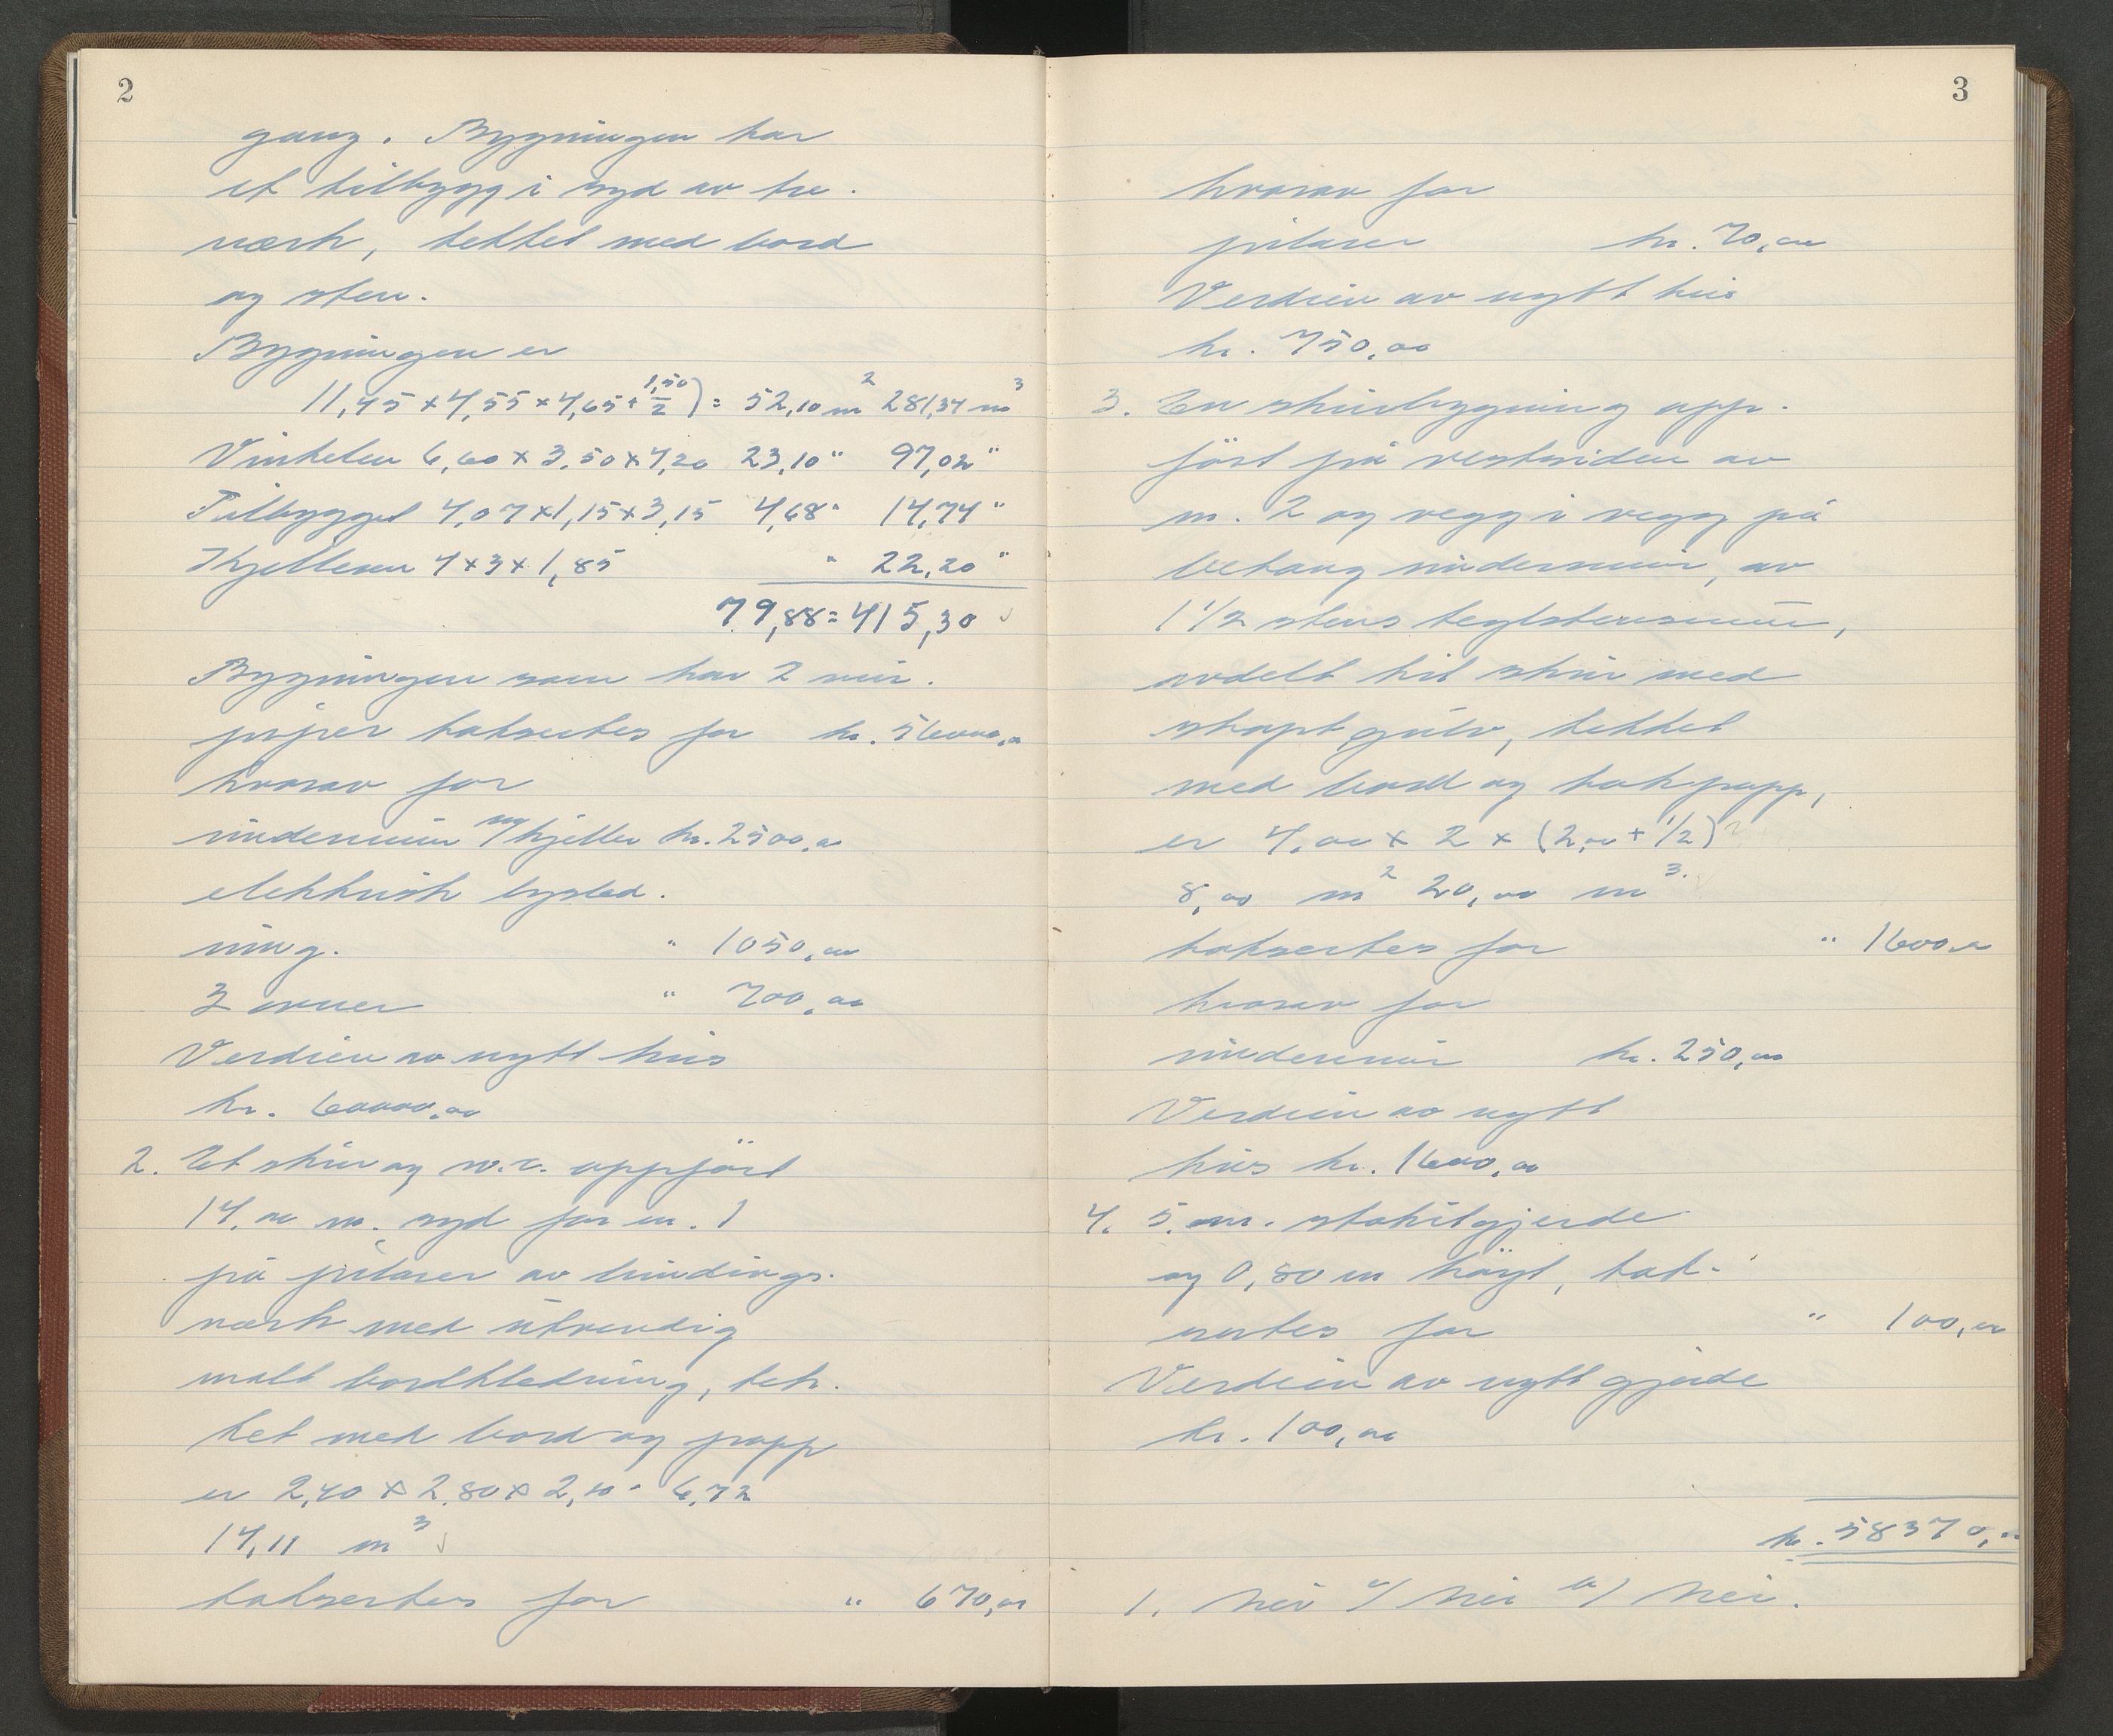 2
gang. Bygningen har
et tilbygg i syd av tre-
værk, tekket med bord
og sten.
Bygningen er
11,45 × 4,55 × 4,65 + 1,50/2) = 52,10 m² 281,34 m³
Vinkelen 6,60 × 3,50 × 4,20 23,10 " 97,02 "
Tilbygget 4,07 × 1,15 × 3,15 4,68 " 14,74 "
Kjelleren 4 × 3 × 1,85 " 22,20 "
79,88 = 415,30
Bygningen som har 2 mur-
piper takseres for kr. 56000,00
hvorav for
undermur og kjeller kr. 2500,00
elektrisk lysled-
ning. " 1050,00
3 ovner " 700,00
Verdien av nytt hus
kr. 60000,00
2. Et skur og w.c. oppført
14,00 m. syd for m. 1
på pilarer av bindings-
værk med utvendig
malt bordkledning, tek-
ket med bord og papp
er 2,40 × 2,80 × 2,10 = 6,72
14,11 m³
takseres for " 670,00
3
hvorav for
pilarer kr. 70,00
Verdien av nytt hus
kr. 750,00
3. En skurbygning opp-
ført på vestsiden av
m. 2 og vegg i vegg på
betong undermur, av
1 1/2 stens teglstensmur,
avdelt til skur med
støpt gulv, tekket
med bord og takpapp,
er 4,00 × 2 × (2,00 + 1/2)
8,00 m² 20,00 m³
takseres for " 1600,00
hvorav for
undermur kr. 250,00
Verdien av nytt
hus kr. 1600,00
4. 5 m. stakitgjerde
og 0,80 m høyt, tak-
seres for " 100,00
Verdien av nytt gjerde
kr. 100,00
kr. 58370,00
1. Nei a/ Nei b/ Nei.